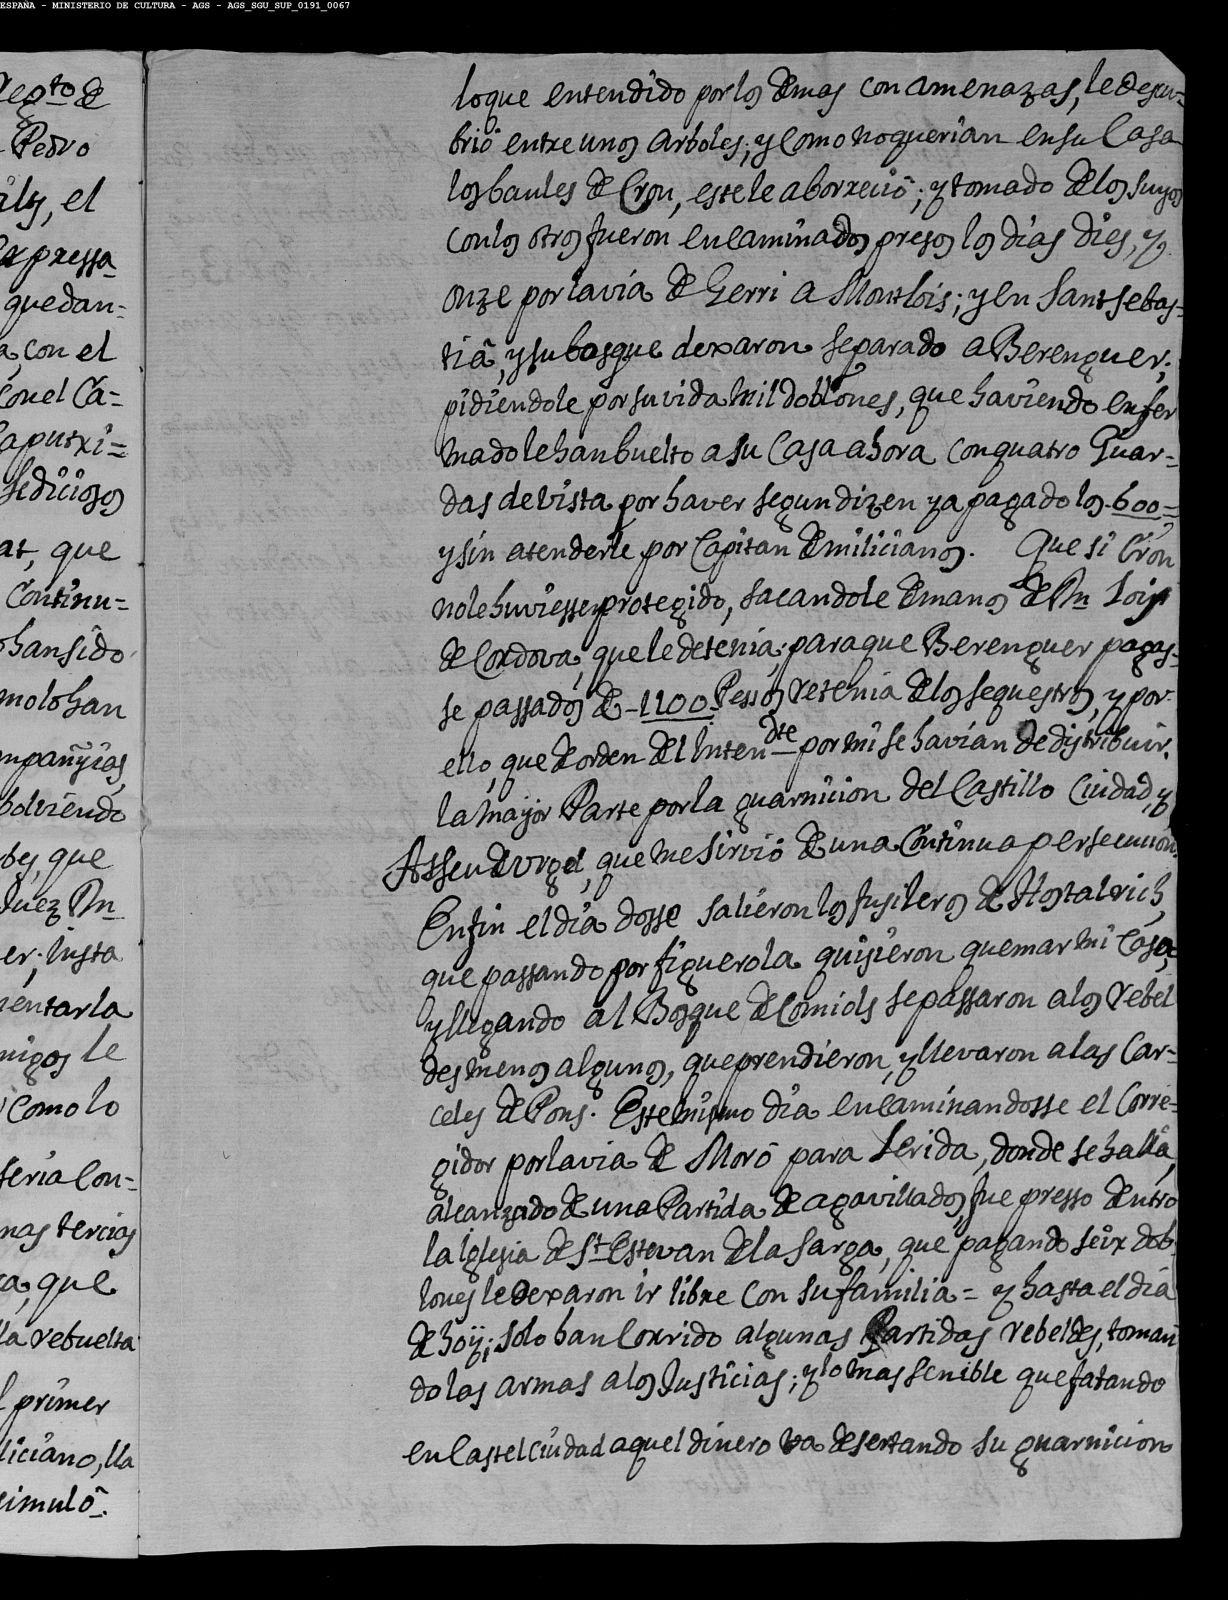 ESPAÑA - MINISTERIO DE CULTURA - AGS - AGS_SGU_SUP_0191_0067
Regto de
Pedro
el
expressa
quedan=
a, con el
con el Ca=
Caputxi=
sediciosos
at, que
Continu=
han sido
molo han
mpañyias,
bolviendo
bes, que
Juez Dn
er; insta
mentarla
migos le
Como lo
seria Con=
nas tercias
ca, que
lla rebuelta
l primer
liciano, lla
simulò.
loque entendido por los demas con amenazas, le descu=
briò entre unos arboles; y como no querian en su Casa
los baules de Cron, este le aborreciò; y tomado de los suyos
con los otros fueron encaminados presos los dias dies, y
onze por la via de Gerri a Montlois; y en Sant Sebas=
tià, y su bosque dexaron separado a Berenguer;
pidiendole por su vida mil doblones, que haviendo enfer
mado le han buelto a su Casa ahora con quatro Guar=
das de vista por haver segun dizen ya pagado los 600=
y sin atenderle por Capitan de milicianos. Que si Cron
no le huviesse protegido, sacandole de manos de Dn Lois
de Cordova, que le detenia; para que Berenguer pagas=
se passados de 1100 Pessos retenia de los sequestros, y por
ello, que de orden del Intendte por mi se havian de distribuir,
la major Parte por la guarnicion del Castillo Ciudad, y
Asseu de Urgel, que me sirviò de una Continua persecucion.
En fin el dia dosse salieron los fusileros de Hostalrich,
que passando por figuerola quisieron quemar mi Casa,
y llegando al Bosque de Comiols se passaron a los rebel
des menos algunos, que prendieron, y llevaron a las Car=
celes de Pons. Este mismo dia encaminandosse el Corre=
gidor por la via de Morò para Lerida, donde se halla,
alcanzado de una Partida de agavillados, fue presso dentro
la Iglesia de St Estevan de la Sarga, que pagando seix dob
lones le dexaron ir libre con su familia = y hasta el dia
de hoÿ; solo han Corrido algunas Partidas rebeldes, toman
do las armas a los Justicias; y lo mas senible que fatando
en Castelciudad aquel dinero va desertando su guarnicion